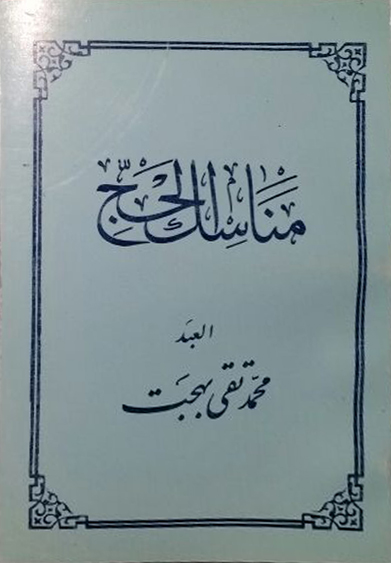 مَنَاسِكُ الْحَجِّ
العبد
محمّد تقی بهجت